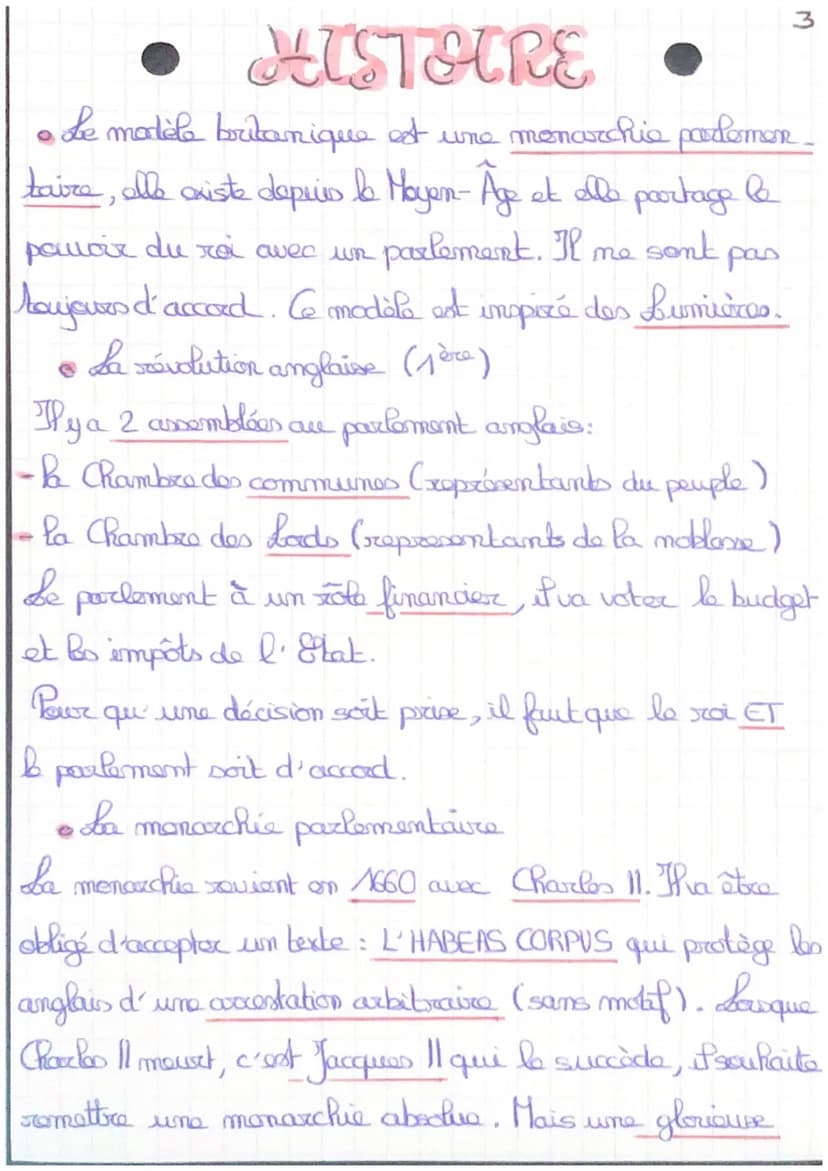 3
HISTOIRE
Le modèle britanique est une monarchie parlemen-
taire, elle existe depuis le Moyen-Âge et elle partage le
pouvoir du roi avec un parlement. Il ne sont pas
toujours d'accord. Ce modèle est inspiré des Lumières.
La révolution anglaise (1ère)
Il y a 2 assemblées au parlement anglais:
- la Chambre des communes (représentants du peuple)
- la Chambre des Lords (représentants de la noblesse)
Le parlement à un rôle financier, il va voter le budget
et les impôts de l'Etat.
Pour qu'une décision soit prise, il faut que le roi ET
le parlement soit d'accord.
La monarchie parlementaire
La monarchie revient en 1660 avec Charles II. Il va être
obligé d'accepter un texte : L'HABEAS CORPUS qui protège les
anglais d'une arrestation arbitraire (sans motif). Lorsque
Charles II meurt, c'est Jacques II qui le succède, il souhaite
remettre une monarchie absolue. Mais une glorieuse